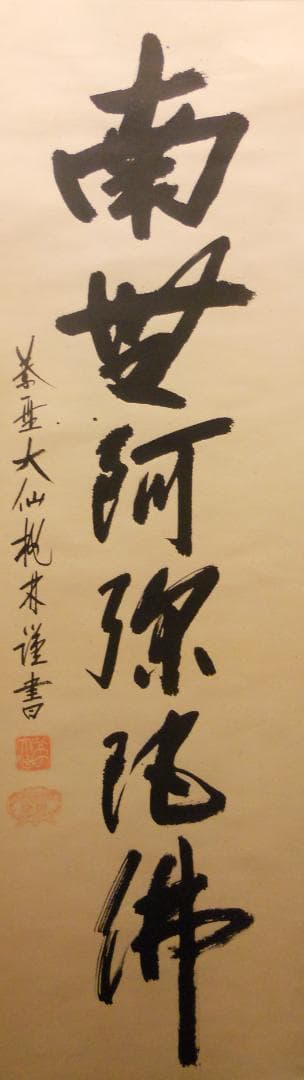 南無阿弥陀佛
大仙桃林謹書